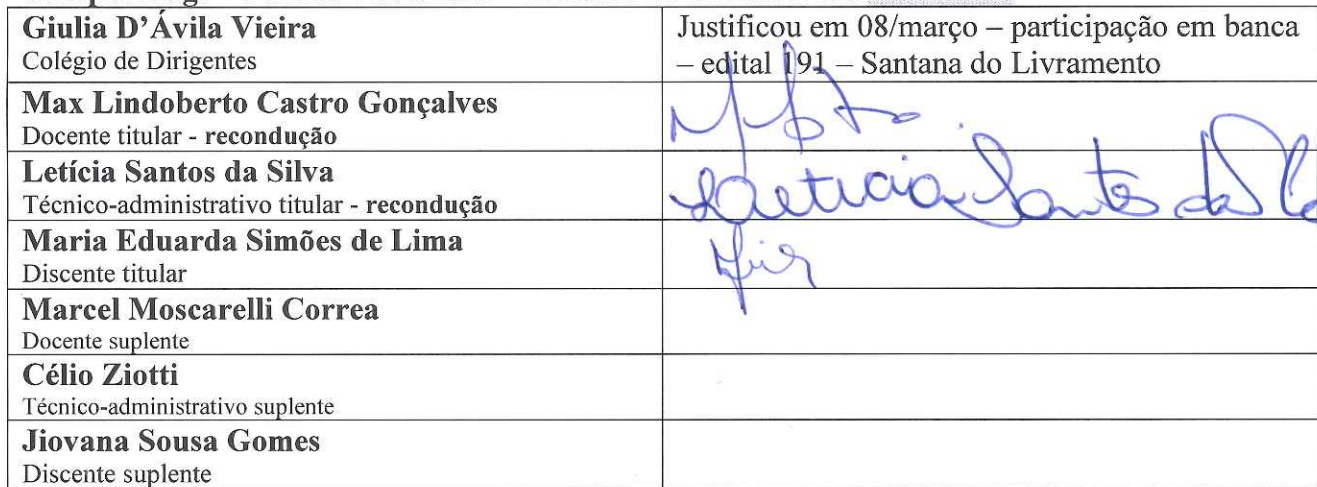 Giulia D'Ávila Vieira
Colégio de Dirigentes
Justificou em 08/março – participação em banca
– edital 191 – Santana do Livramento
Max Lindoberto Castro Gonçalves
Docente titular - recondução
Letícia Santos da Silva
Técnico-administrativo titular - recondução
Laeticia Santos da
Maria Eduarda Simões de Lima
Discente titular
Marcel Moscarelli Correa
Docente suplente
Célio Ziotti
Técnico-administrativo suplente
Jiovana Sousa Gomes
Discente suplente